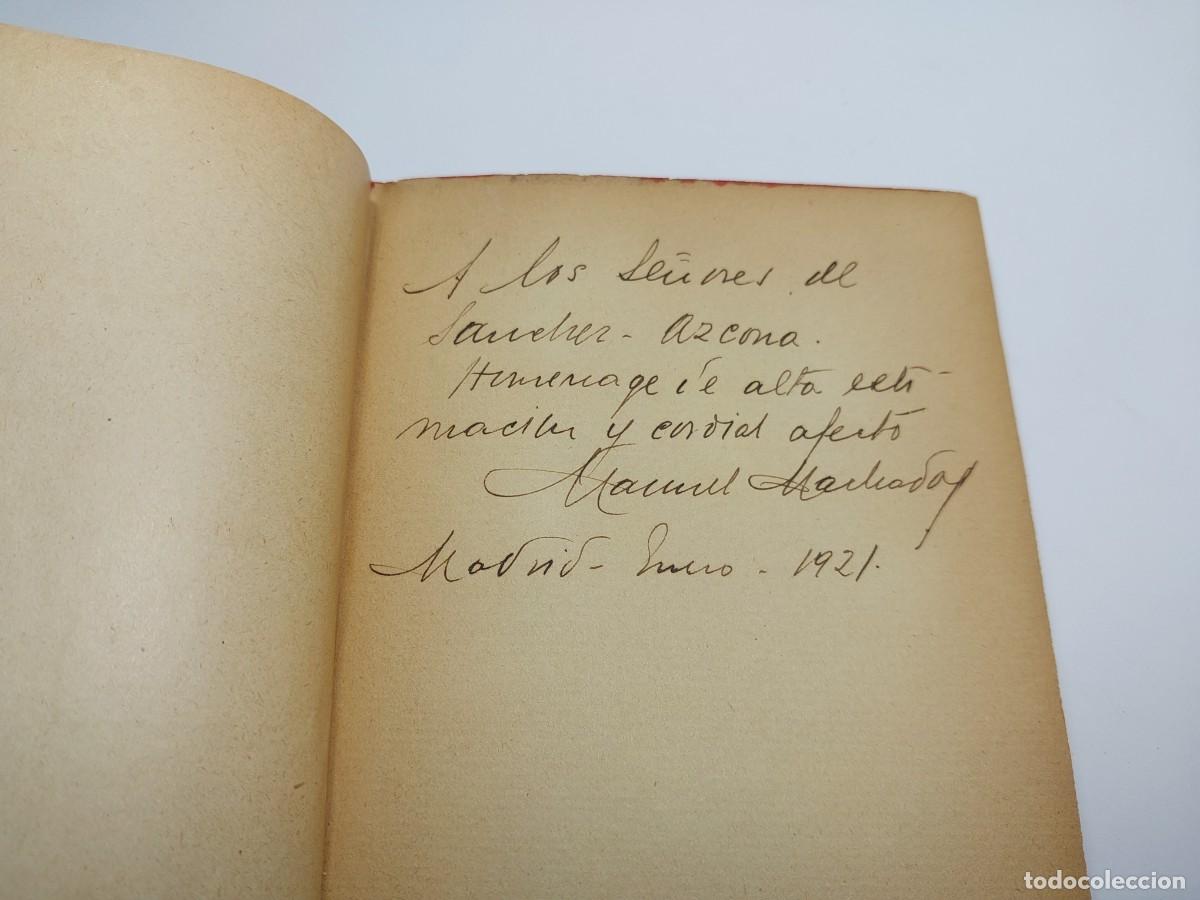 A los Señores de
Sanchez - Azcona.
Homenage de alta esti-
macion y cordial afecto
Manuel Machado
Madrid - Enero - 1921.
todocoleccion